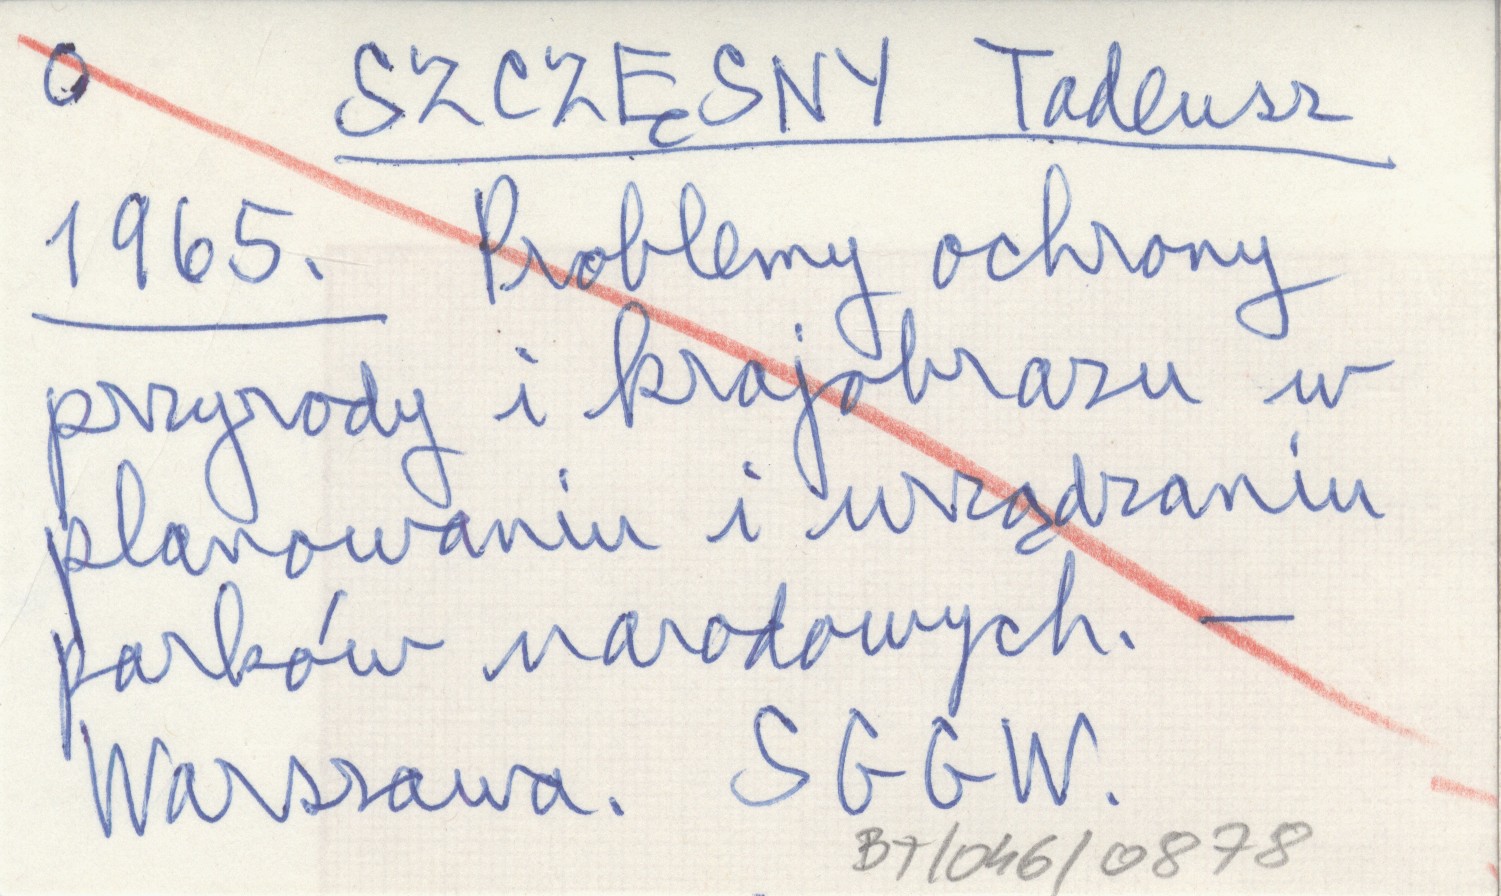 O SZCZĘSNY Tadeusz
1965. Problemy ochrony
przyrody i krajobrazu w
planowaniu i urządzaniu
parków narodowych. —
Warszawa. SGGW.
BT/046/0878